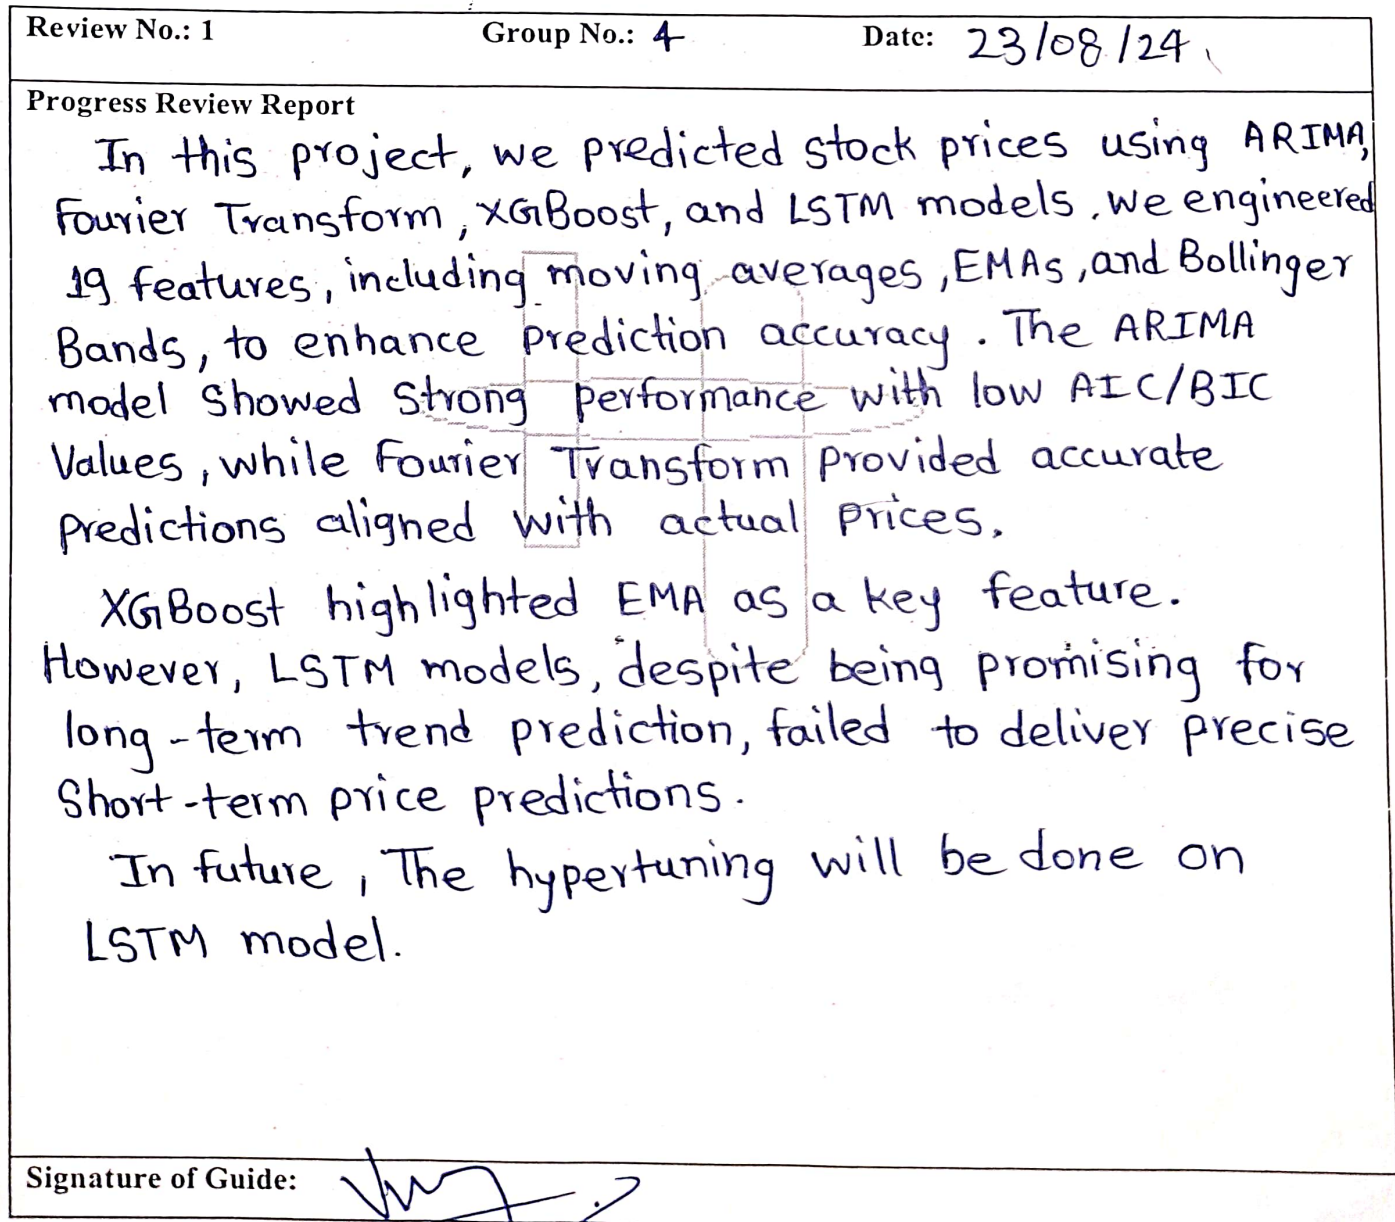 Review No.: 1 Group No.: 4 Date: 23/08/24
Progress Review Report
In this project, we predicted stock prices using ARIMA,
Fourier Transform, XGBoost, and LSTM models. We engineered
19 features, including moving averages, EMAs, and Bollinger
Bands, to enhance prediction accuracy. The ARIMA
model Showed Strong performance with low AIC/BIC
Values, while Fourier Transform provided accurate
predictions aligned with actual prices.
XGBoost highlighted EMA as a key feature.
However, LSTM models, despite being promising for
long-term trend prediction, failed to deliver precise
Short-term price predictions.
In future, The hypertuning will be done on
LSTM model.
Signature of Guide: